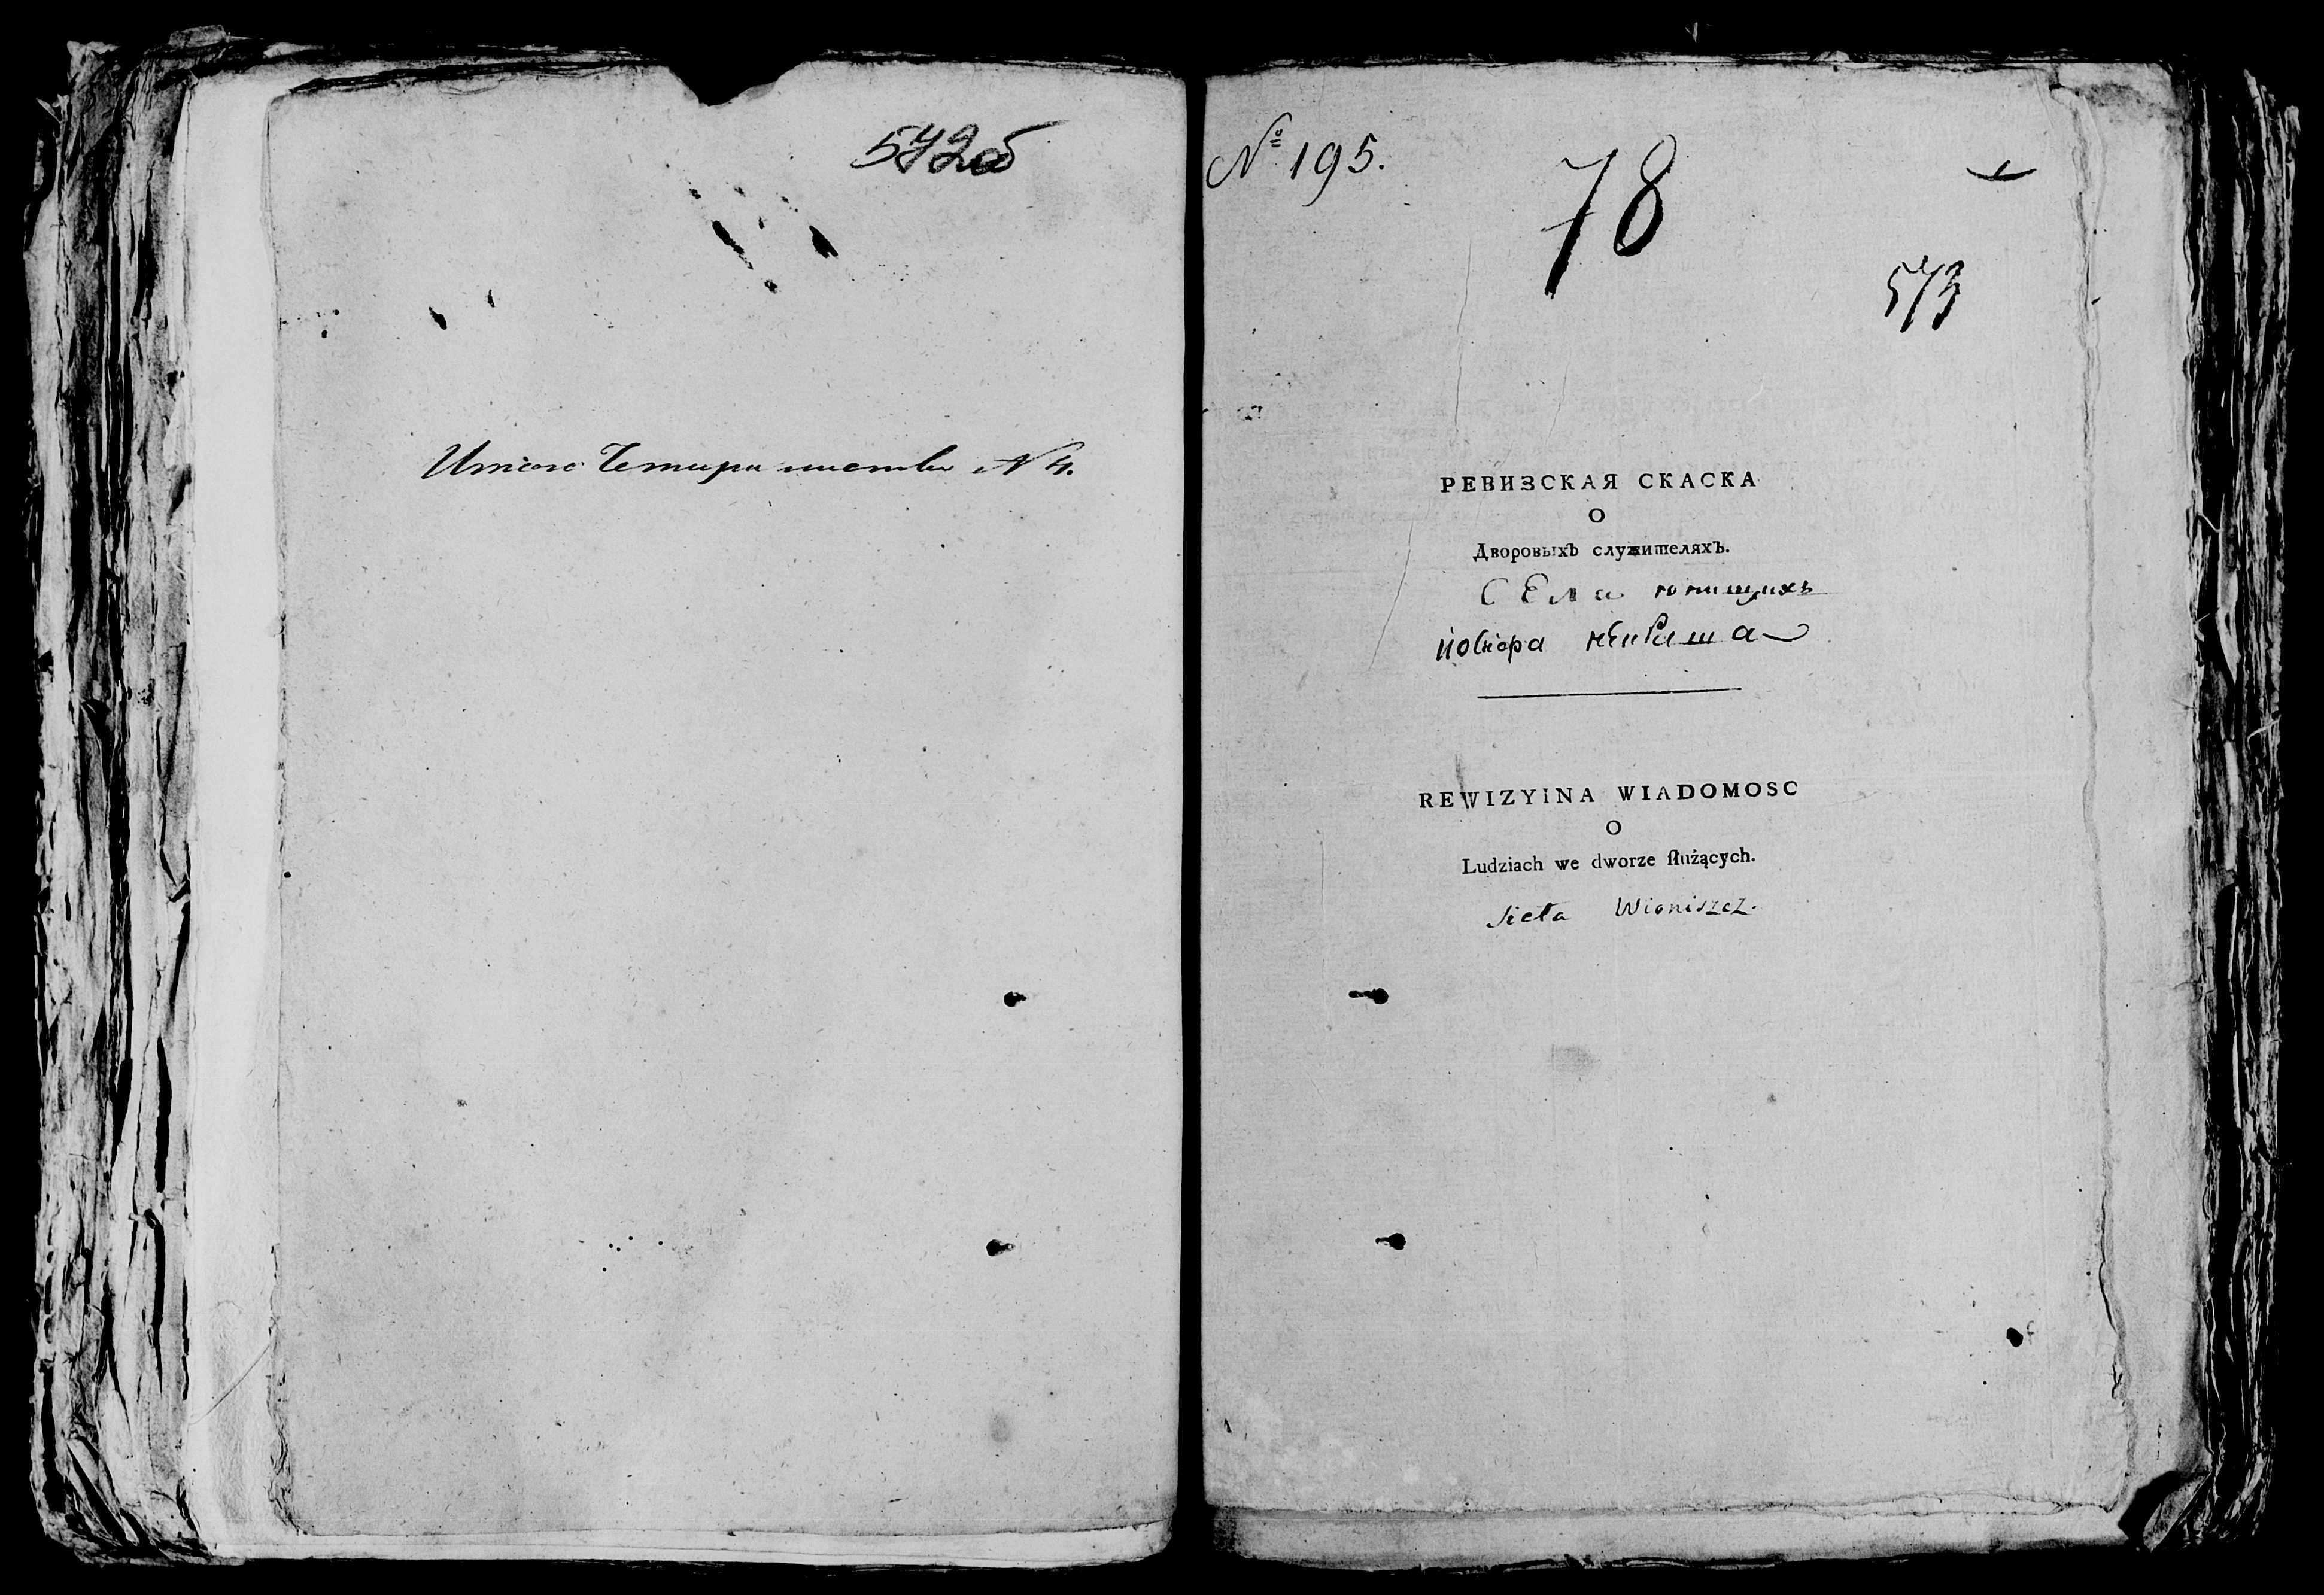 572об
Итого Четыри листы N 4.
№ 195.
78
573
РЕВИЗСКАЯ СКАСКА
О
Дворовыхъ служителяхъ.
СЕла
REWIZYINA WIADOMOSC
O
Ludziach we dworze ſłużących.
Sieła Wioniszcz.